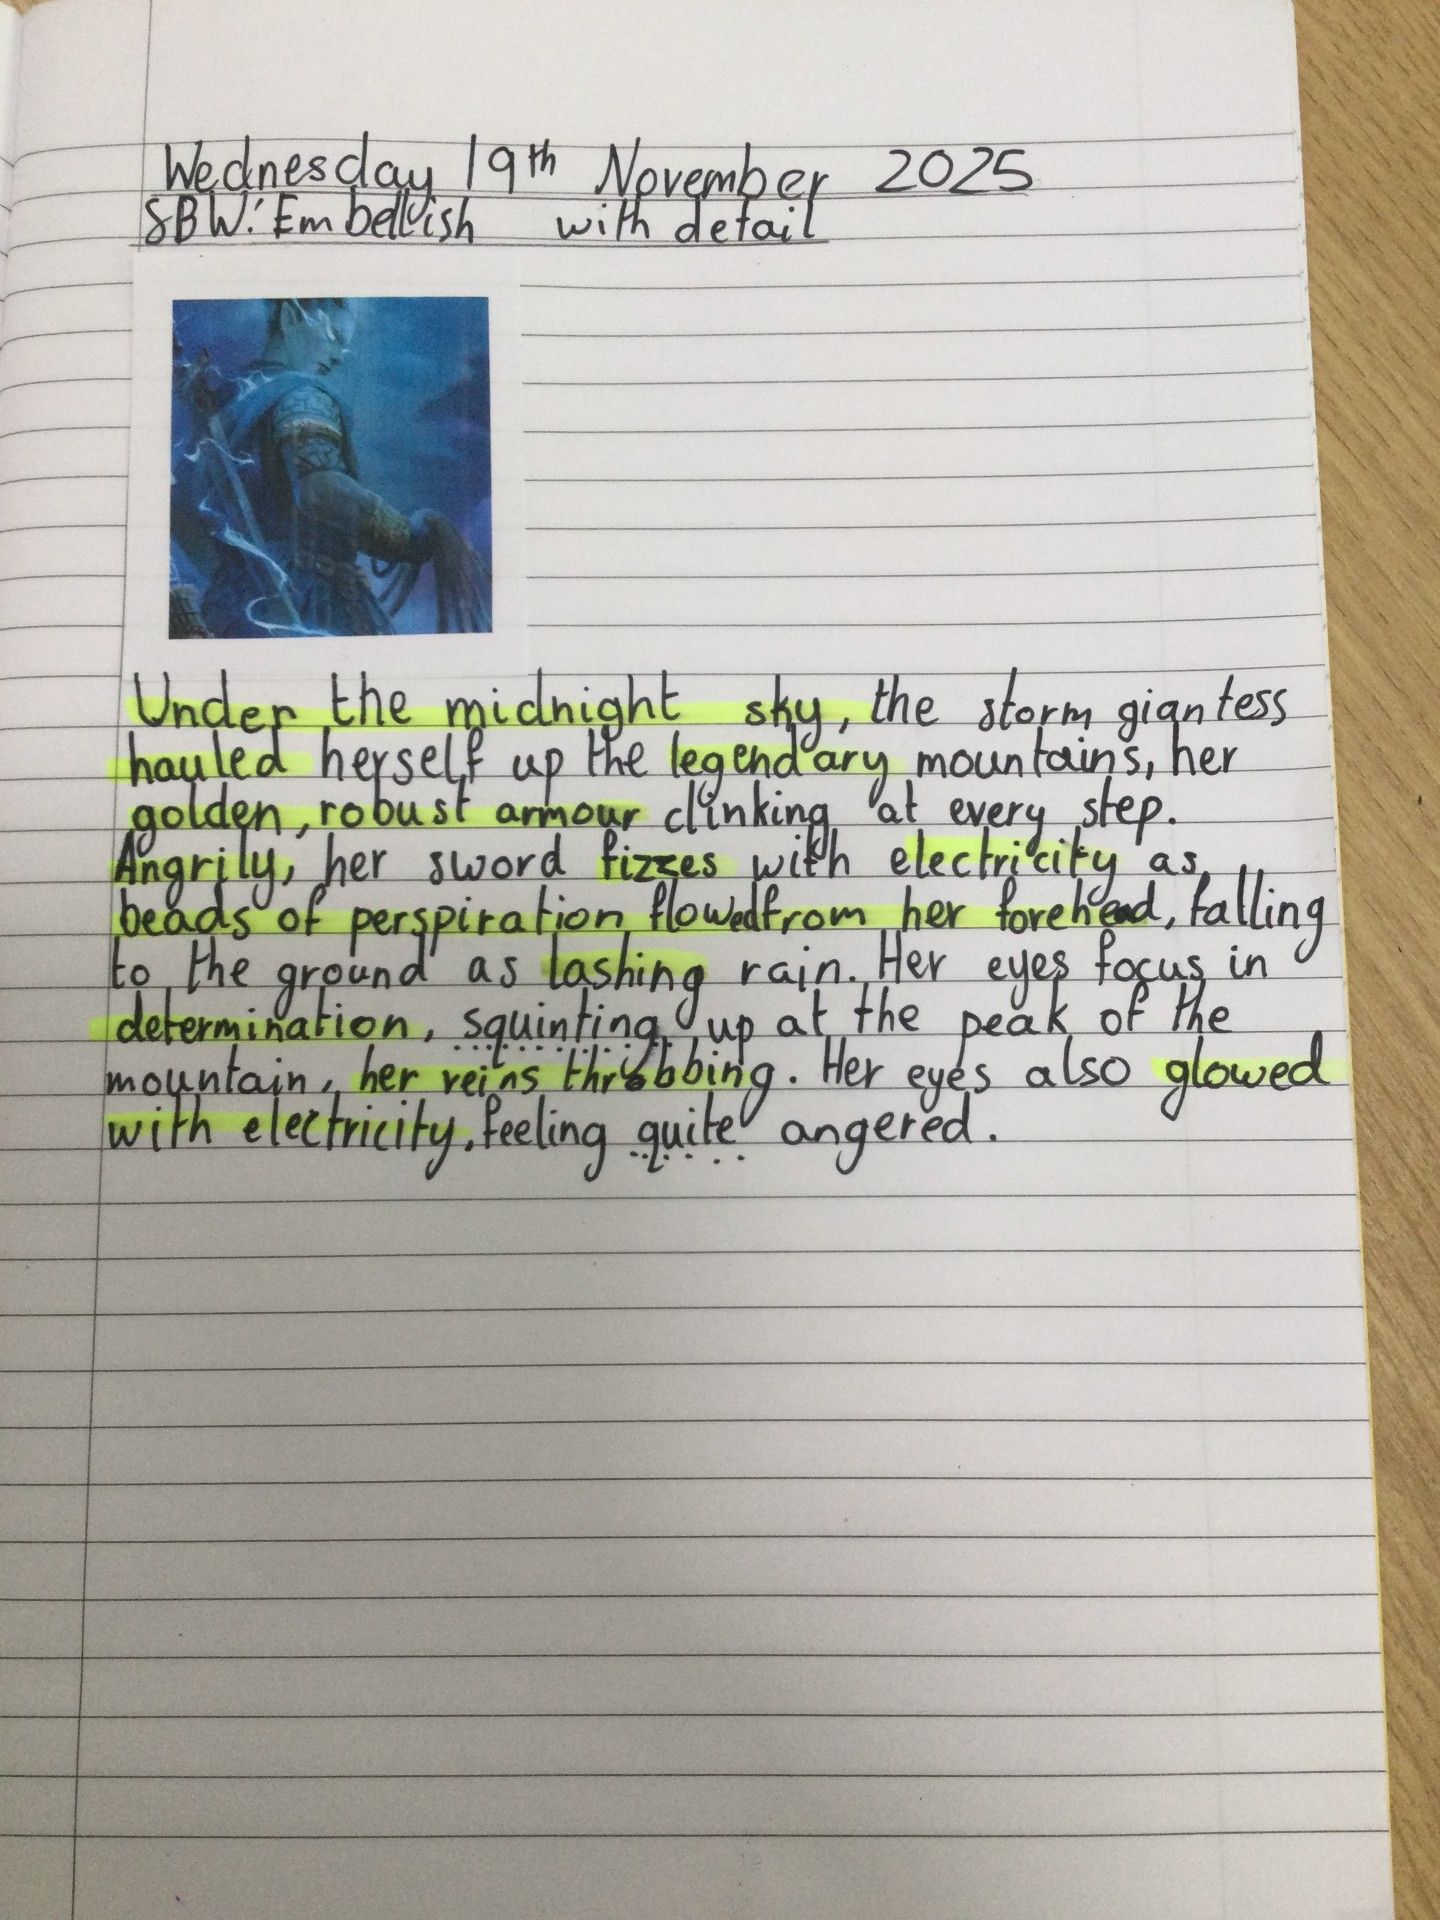 Wednesday 19th November 2025
SBW: Embellish with detail
Under the midnight sky, the storm giantess
hauled herself up the legendary mountains, her
golden, robust armour clinking at every step.
Angrily, her sword fizzes with electricity as
beads of perspiration flowed from her forehead, falling
to the ground as lashing rain. Her eyes focus in
determination, squinting up at the peak of the
mountain, her veins throbbing. Her eyes also glowed
with electricity, feeling quite angered.